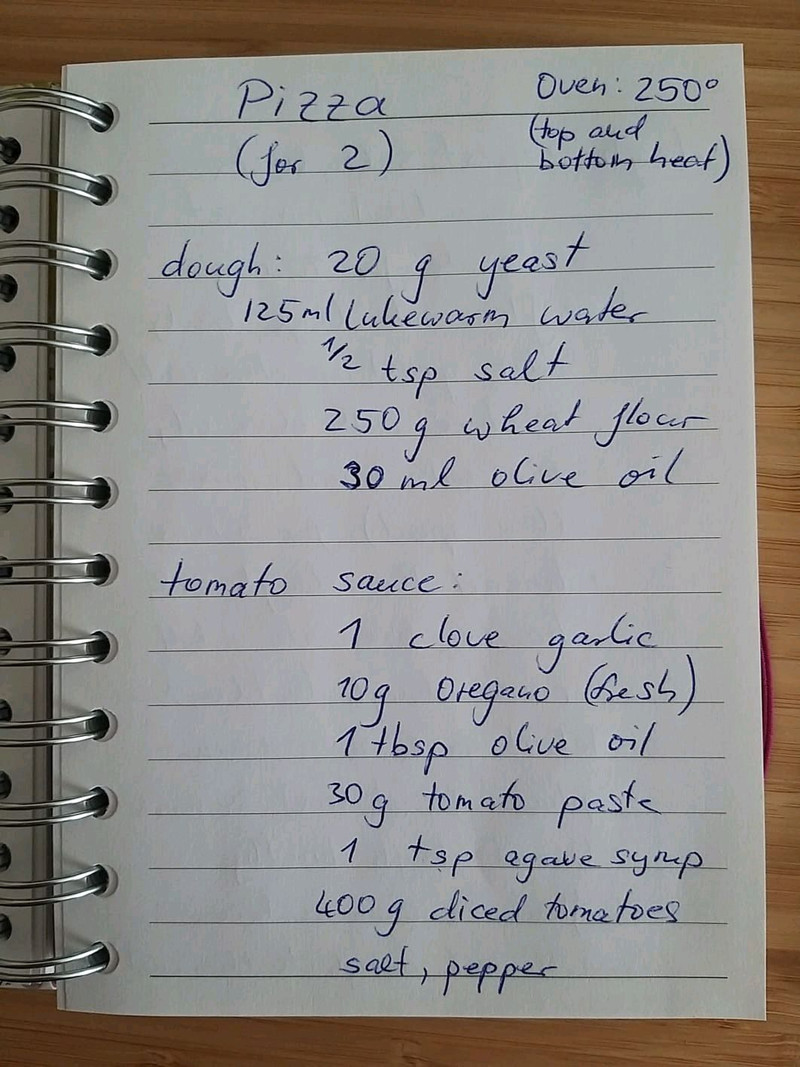 Pizza
Oven: 250°
(for 2)
(top and
bottom heat)
dough: 20 g yeast
125ml lukewarm water
1/2 tsp salt
250g wheat flour
30 ml olive oil
tomato sauce:
1 clove garlic
10g Oregano (fresh)
1 tbsp olive oil
30g tomato paste
1 tsp agave syrup
400g diced tomatoes
salt, pepper